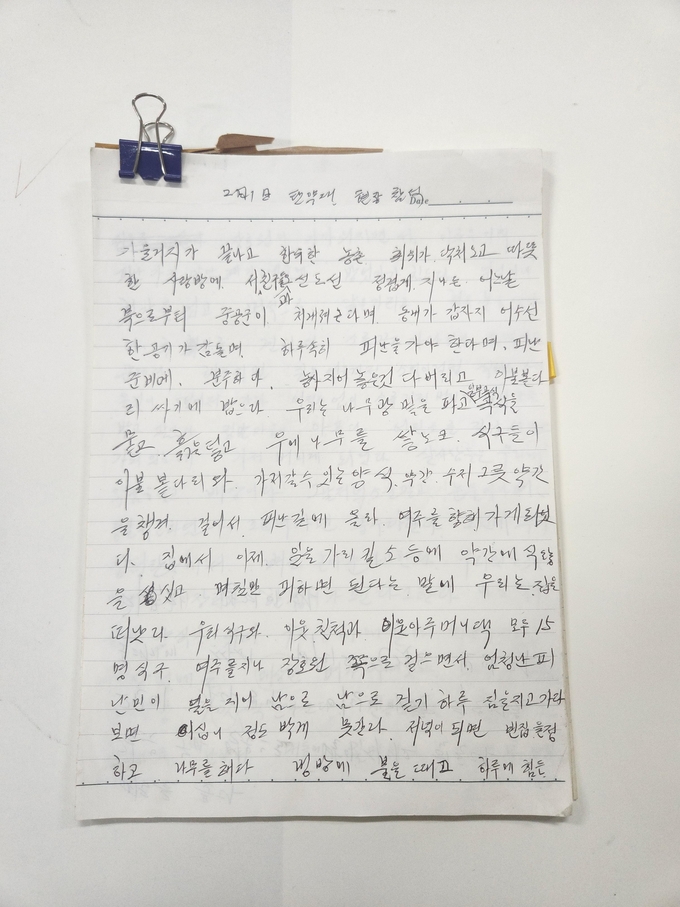 가을거지가 끝나고 한가한 농촌 에 닥처오고 따뜻
한 사랑방에. 서 친구들과 선도선 정겹게. 지나는 어느날
북으로부터 중공군이 처내려온다며 동네가 갑자기 어수선
한 공기가 감돌며. 하루속히 피난을 가야 한다며. 피난
준비에. 분주하다. 농사지어 놓은것 다 버리고 이불본다
리 싸기에 밥으다. 우리는 나무광 밑을 파고 곡식을
묻고 흙은 덥고 우에 나무를 쌓노코. 식구들이
이불 볻다리와. 가저갈수 있는 양식. 약간. 수저 그릇 약간
을 챙겨. 걸어서. 피난길에 올라. 여주를 향해 가게되었
다. 집에서 이제. 소 등에 약간에 식량
을 싯고. 며칠만 피하면 된다는 말에 우리는. 집을
떠낫다. 우리식구와. 이웃 친척과 아주머니댁 모두 15
명 식구. 여주를지나 장호원 쪽으로 걸으면서. 엄청난 피
난민이 열을 지어 남으로 남으로 걷기 하루 짐을지고가다
보면 이십니 정도 박게 못간다. 저녁이 되면 빈집을정
하고 나무를 해다 냉방에 불을 때고 하루에 힘든